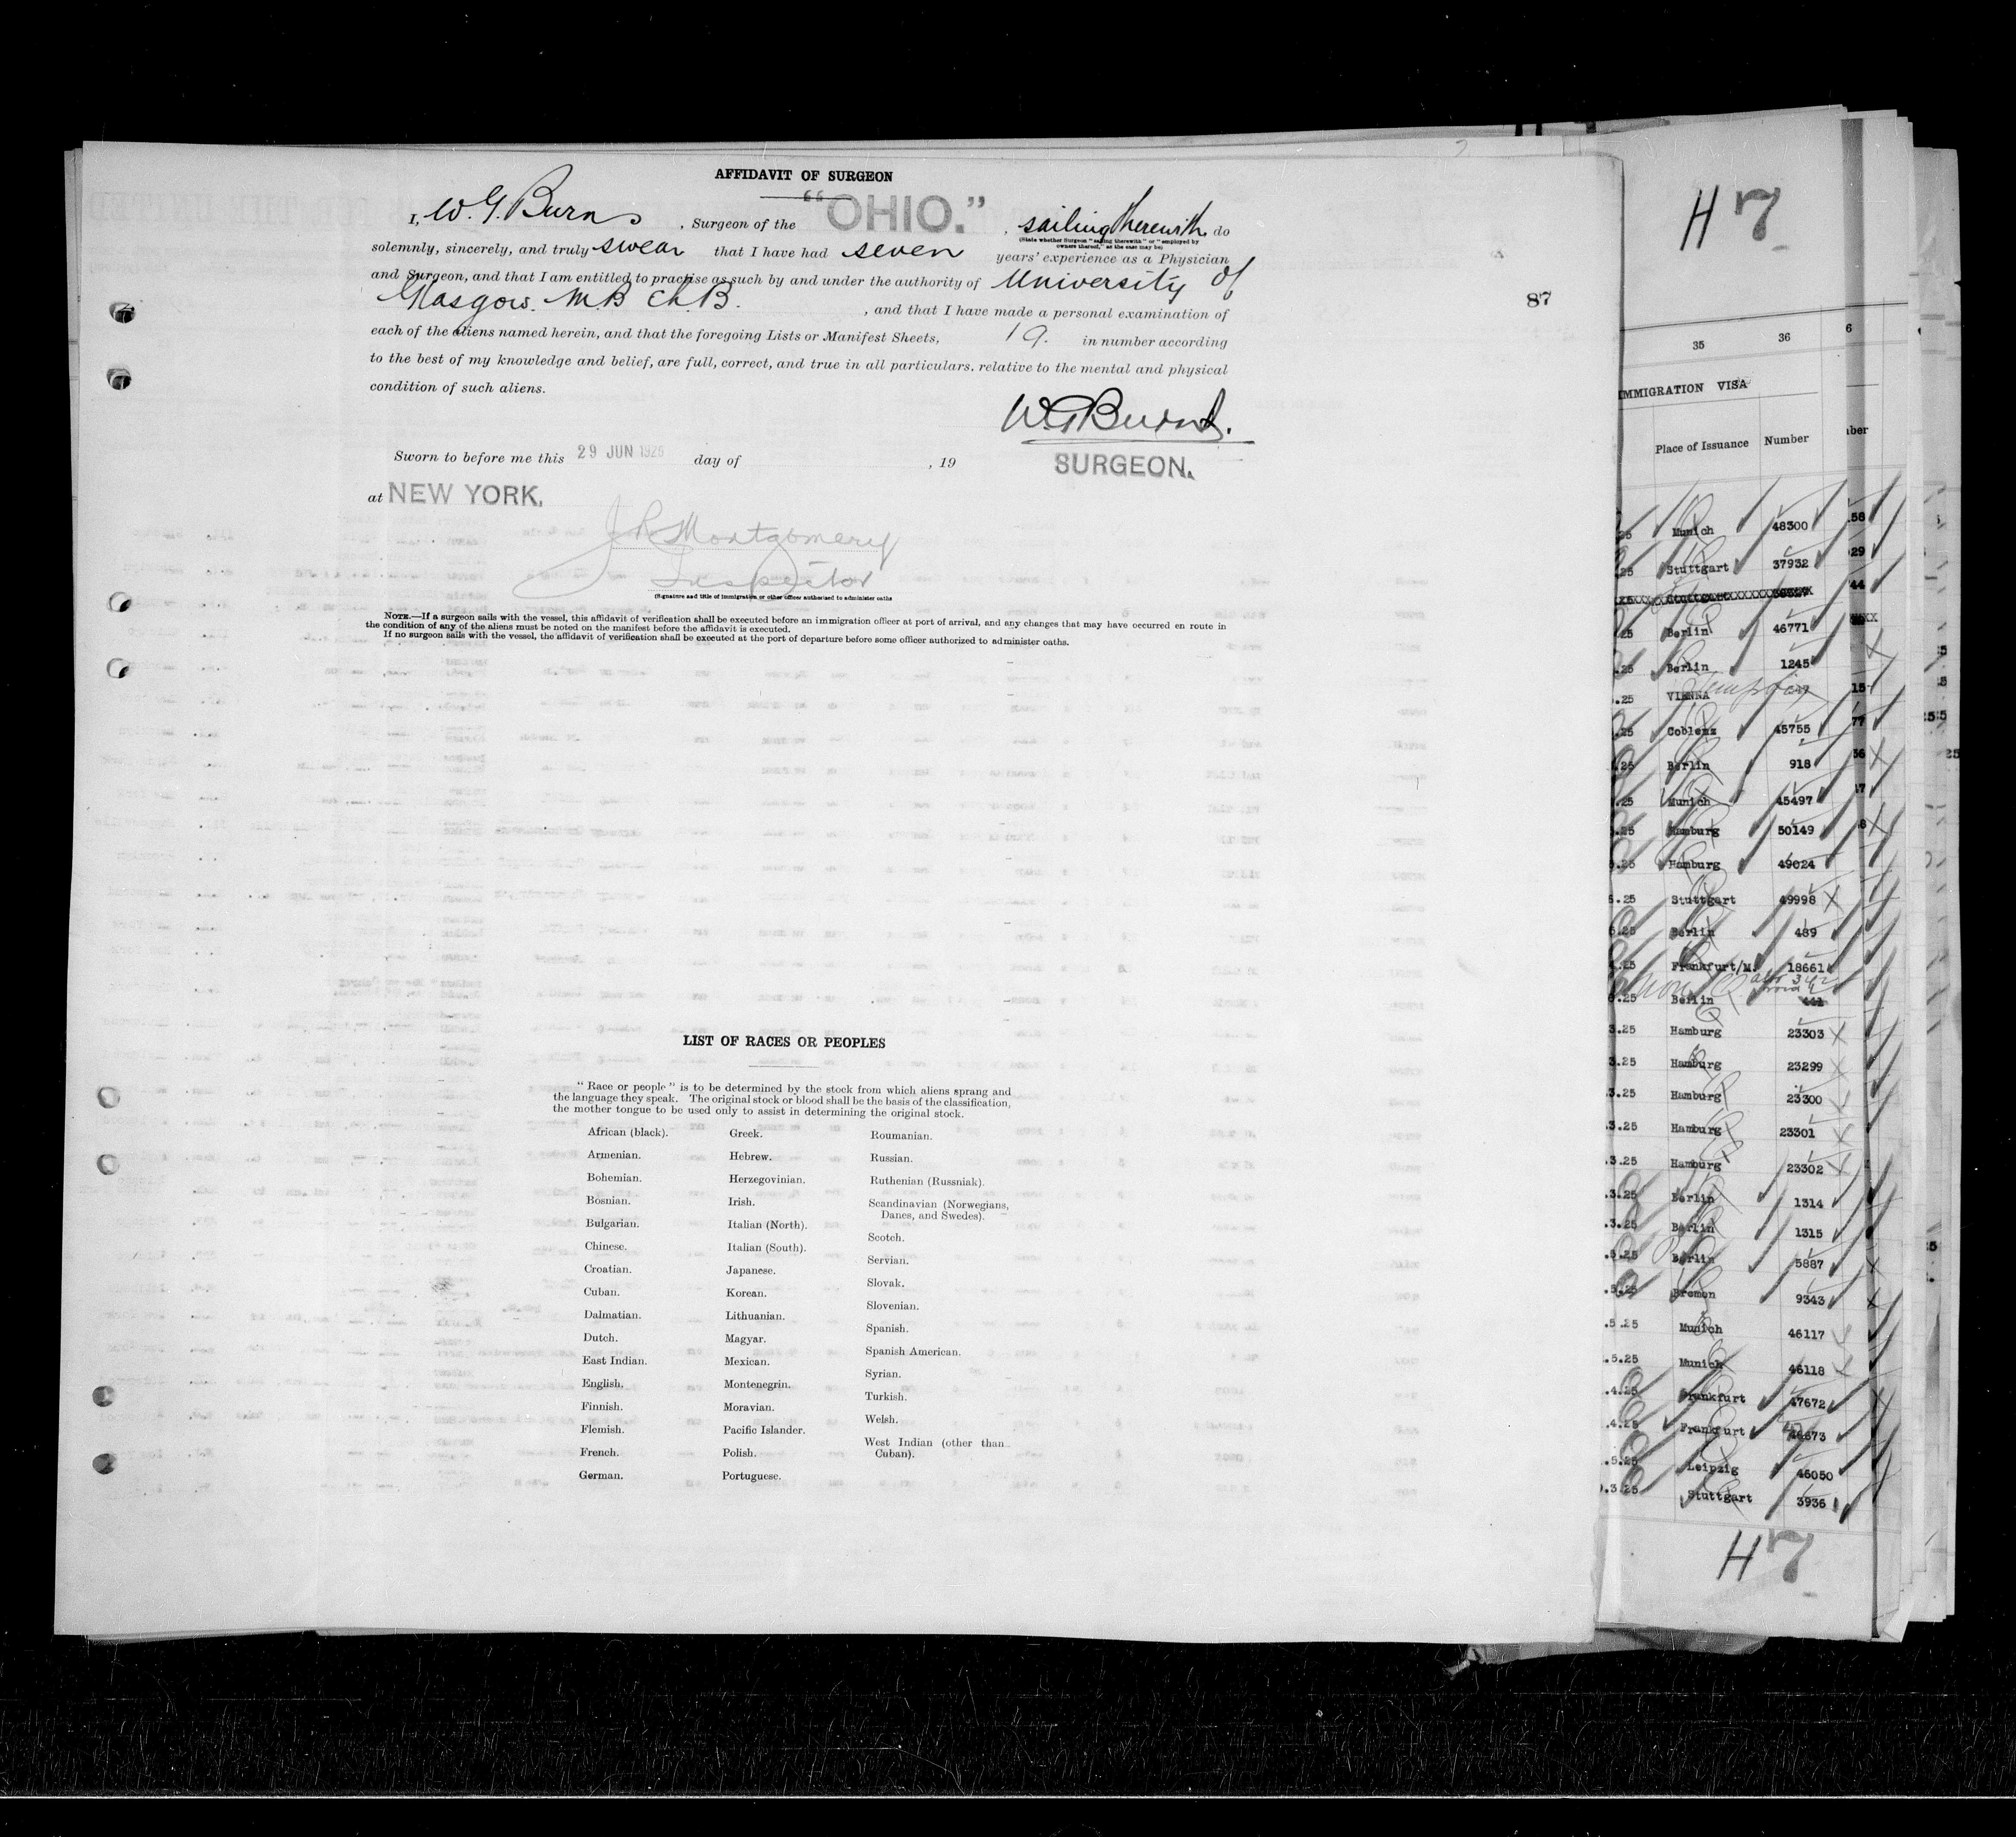 AFFIDAVIT OF SURGEON
I, W. G. Burns, Surgeon of the "OHIO.", sailing therewith, do
(State whether Surgeon "sailing therewith" or "employed by
owners thereof," as the case may be)
solemnly, sincerely, and truly swear that I have had seven years' experience as a Physician
and Surgeon, and that I am entitled to practise as such by and under the authority of University of
Glasgow. M.B Ch.B. , and that I have made a personal examination of
each of the aliens named herein, and that the foregoing Lists or Manifest Sheets, 19. in number according
to the best of my knowledge and belief, are full, correct, and true in all particulars, relative to the mental and physical
condition of such aliens.
W.G Burns.
SURGEON.
Sworn to before me this 29 JUN 1925 day of , 19
at NEW YORK.
J R Montgomery
Inspector
(Signature and title of immigration or other officer authorised to administer oaths
NOTE.—If a surgeon sails with the vessel, this affidavit of verification shall be executed before an immigration officer at port of arrival, and any changes that may have occurred en route in
the condition of any of the aliens must be noted on the manifest before the affidavit is executed.
If no surgeon sails with the vessel, the affidavit of verification shall be executed at the port of departure before some officer authorized to administer oaths.
87
LIST OF RACES OR PEOPLES
"Race or people" is to be determined by the stock from which aliens sprang and
the language they speak. The original stock or blood shall be the basis of the classification,
the mother tongue to be used only to assist in determining the original stock.
African (black).
Armenian.
Bohemian.
Bosnian.
Bulgarian.
Chinese.
Croatian.
Cuban.
Dalmatian.
Dutch.
East Indian.
English.
Finnish.
Flemish.
French.
German.
Greek.
Hebrew.
Herzegovinian.
Irish.
Italian (North).
Italian (South).
Japanese.
Korean.
Lithuanian.
Magyar.
Mexican.
Montenegrin.
Moravian.
Pacific Islander.
Polish.
Portuguese.
Roumanian.
Russian.
Ruthenian (Russniak).
Scandinavian (Norwegians,
Danes, and Swedes).
Scotch.
Servian.
Slovak.
Slovenian.
Spanish.
Spanish American.
Syrian.
Turkish.
Welsh.
West Indian (other than
Cuban).
H 7
35 36
IMMIGRATION VISA
Place of Issuance Number
.25 Munich 48300
.25 Stuttgart 37932
Stuttgart
.25 Berlin 46771
.25 Berlin 1245
.25 VIENNA
.25 Coblenz 45755
.25 Berlin 918
.25 Munich 45497
.25 Hamburg 50149
.25 Hamburg 49024
.25 Stuttgart 49998
.25 Berlin 489
.25 Frankfurt/M. 18661
.25 Berlin
3.25 Hamburg 23303
3.25 Hamburg 23299
3.25 Hamburg 23300
.3.25 Hamburg 23301
.3.25 Hamburg 23302
.3.25 Berlin 1314
.3.25 Berlin 1315
.5.25 Berlin 5887
.5.25 Bremen 9343
.5.25 Munich 46117
.5.25 Munich 46118
.4.25 Frankfurt 47672
.4.25 Frankfurt
.5.25 Leipzig 46050
.3.25 Stuttgart 3936
H 7